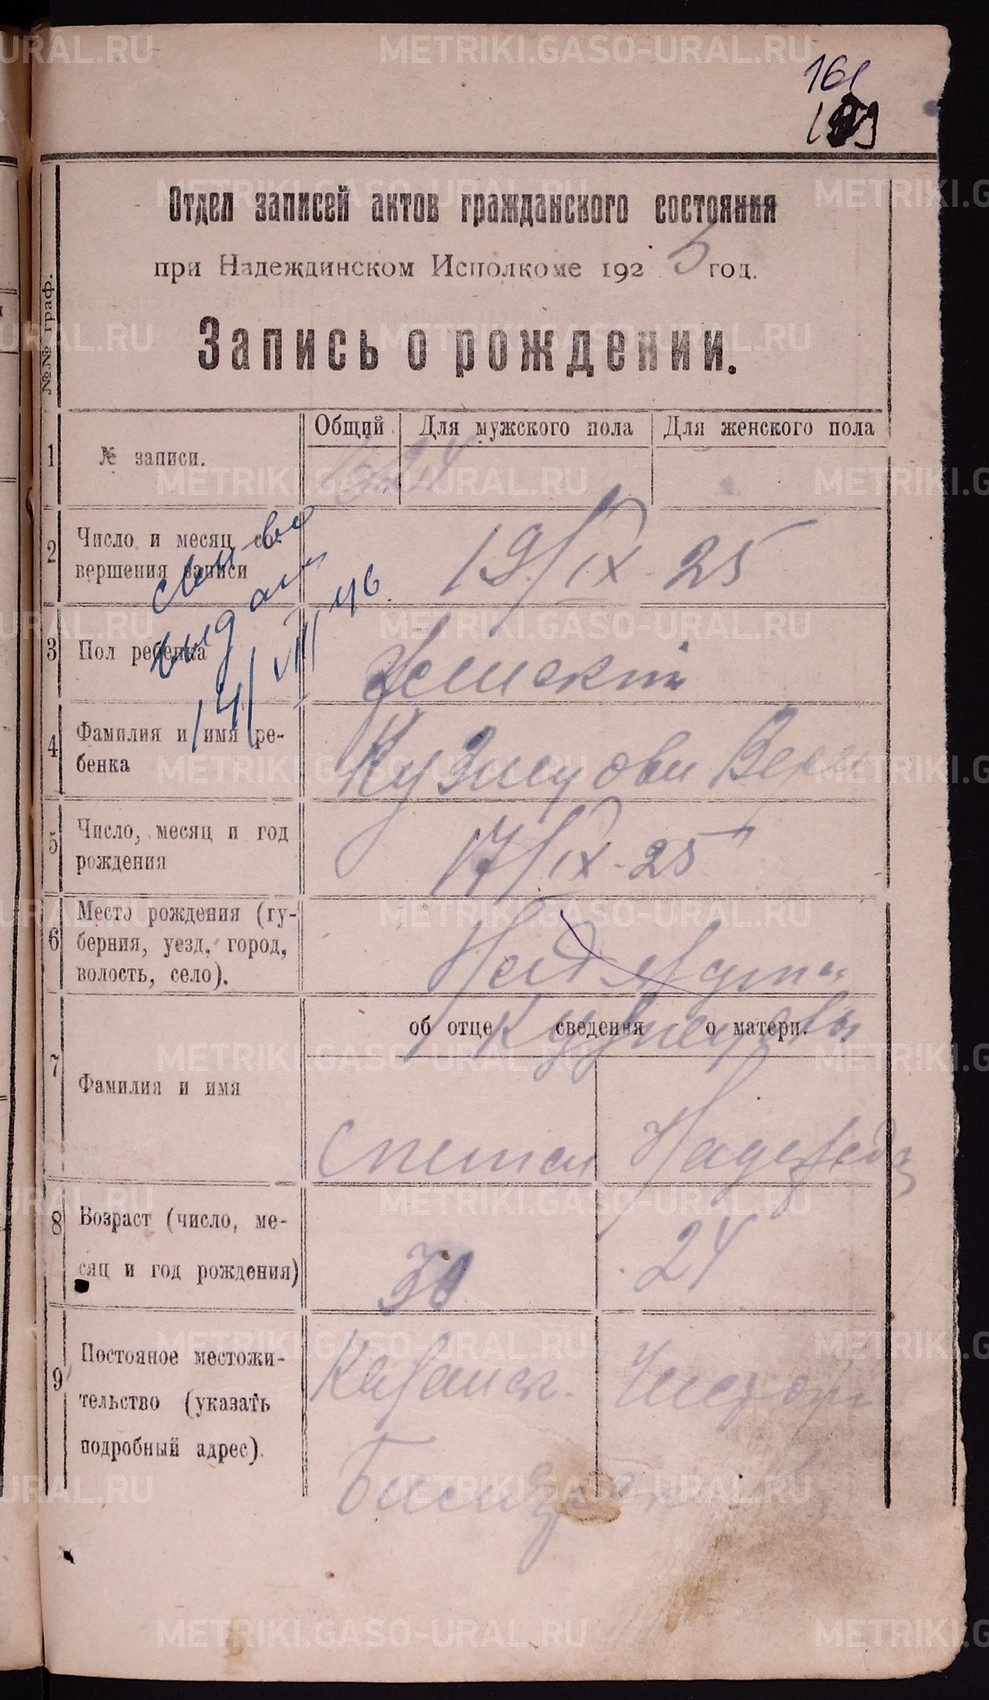 161
Отдел записей актов гражданского состояния
при Надеждинском Исполкоме 1925 год.
Запись о рождении.
№№ граф.
Общий Для мужского пола Для женского пола
1 № записи.
2 Число и месяц со-
вершения записи
19/IX-25
выдан
14/VIII 46.
3 Пол ребенка
Женский
4 Фамилия и имя ре-
бенка
Кузнецова Вера
5 Число, месяц и год
рождения
17/IX-25
6 Место рождения (гу-
берния, уезд, город,
волость, село).
Над
об отце сведения о матери.
Кузнецовы
7 Фамилия и имя
Степан Надежда
8 Возраст (число, ме-
сяц и год рождения)
30 24
9 Постояное местожи-
тельство (указать
подробный адрес).
METRIKI.GASO-URAL.RU